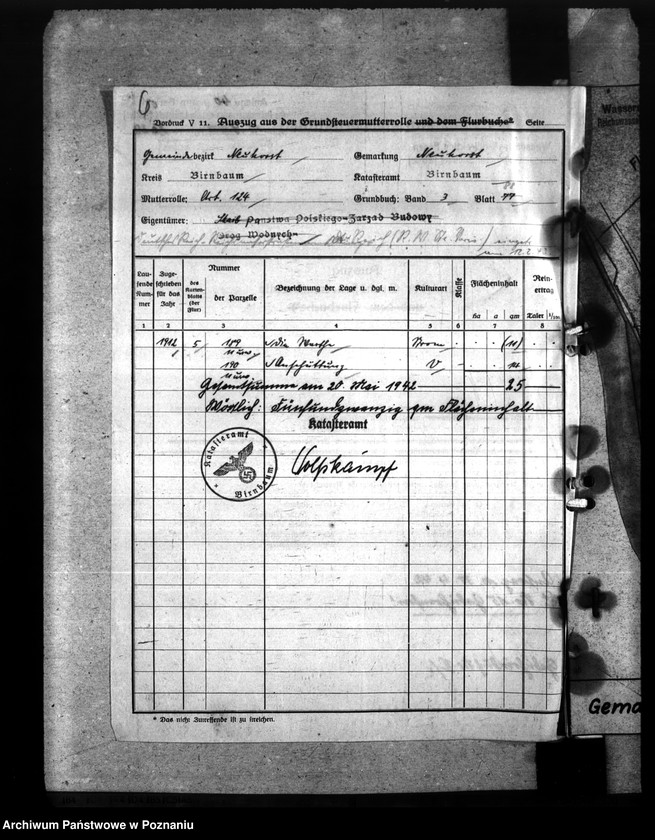 6
Vordruck V 11. Auszug aus der Grundsteuermutterrolle und dem Flurbuche* Seite
Gemeindebezirk Neuhorst Gemarkung Neuhorst
Kreis Birnbaum Katasteramt Birnbaum
Mutterrolle: Art. 124 Grundbuch: Band 3 Blatt
Eigentümer: Skarb Państwa Polskiego-Zarząd Budowy
Dróg Wodnych
Laufende Nummer
Zugeschrieben für das Jahr
Nummer
des Kartenblatts (der Flur)
der Parzelle
Bezeichnung der Lage u. dgl. m.
Kulturart
Klasse
Flächeninhalt
ha a qm
Reinertrag
Taler 1/100
1 2 3 4 5 6 7 8
1942 5 189 die Warthe Strom (11)
190 Anschüttung U 14
Gesamtsumme am 20. Mai 1942 25
Wörtlich: Fünfundzwanzig qm Flächeninhalt
Katasteramt
Katasteramt
Birnbaum
Wolfskämpf
* Das nicht Zutreffende ist zu streichen.
Wasser
Gema
Archiwum Państwowe w Poznaniu